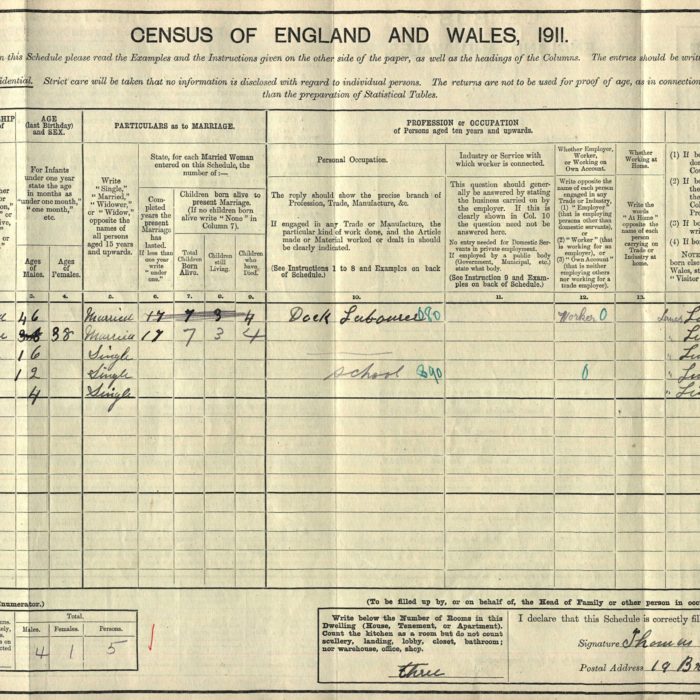 CENSUS OF ENGLAND AND WALES, 1911.
n this Schedule please read the Examples and the Instructions given on the other side of the paper, as well as the headings of the Columns. The entries should be writ
idential. Strict care will be taken that no information is disclosed with regard to individual persons. The returns are not to be used for proof of age, as in connection
than the preparation of Statistical Tables.
AGE
(last Birthday)
and SEX.
For Infants
under one year
state the age
in months as
"under one month,"
"one month,"
etc.
Ages
of
Males.
Ages
of
Females.
3.
4.
PARTICULARS as to MARRIAGE.
Write
"Single,"
"Married,"
"Widower,"
or "Widow,"
opposite the
names of
all persons
aged 15 years
and upwards.
5.
State, for each Married Woman
entered on this Schedule, the
number of :—
Com-
pleted
years the
present
Marriage
has
lasted.
If less than
one year
write
"under
one."
6.
Children born alive to
present Marriage.
(If no children born
alive write "None" in
Column 7).
Total
Children
Born
Alive.
7.
Children
still
Living.
8.
Children
who
have
Died.
9.
PROFESSION or OCCUPATION
of Persons aged ten years and upwards.
Personal Occupation.
The reply should show the precise branch of
Profession, Trade, Manufacture, &c.
If engaged in any Trade or Manufacture, the
particular kind of work done, and the Article
made or Material worked or dealt in should
be clearly indicated.
(See Instructions 1 to 8 and Examples on back
of Schedule.)
10.
Industry or Service with
which worker is connected.
This question should gener-
ally be answered by stating
the business carried on by
the employer. If this is
clearly shown in Col. 10
the question need not be
answered here.
No entry needed for Domestic Ser-
vants in private employment.
If employed by a public body
(Government, Municipal, etc.)
state what body.
(See Instruction 9 and Exam-
ples on back of Schedule.)
11.
Whether Employer,
Worker,
or Working on
Own Account.
Write opposite the
name of each person
engaged in any
Trade or Industry,
(1) "Employer"
(that is employing
persons other than
domestic servants),
or
(2) "Worker" (that
is working for an
employer), or
(3) "Own Account"
(that is neither
employing others nor
working for a trade
employer).
12.
Whether
Working at
Home.
Write the
words
"At Home"
opposite the
name of each
person
carrying on
Trade or
Industry
at Home.
13.
46 Married 17 7 3 4 Dock Labourer 080 Worker 0
38 Married 17 7 3 4
16 Single
12 Single School 390 0
4 Single
Total.
Males.
Females.
Persons.
4 1 5
(To be filled up by, or on behalf of, the Head of Family or other person in occ
Write below the Number of Rooms in this
Dwelling (House, Tenement, or Apartment).
Count the kitchen as a room but do not count
scullery, landing, lobby, closet, bathroom;
nor warehouse, office, shop.
three
I declare that this Schedule is correctly fil
Signature Thomas
Postal Address 19